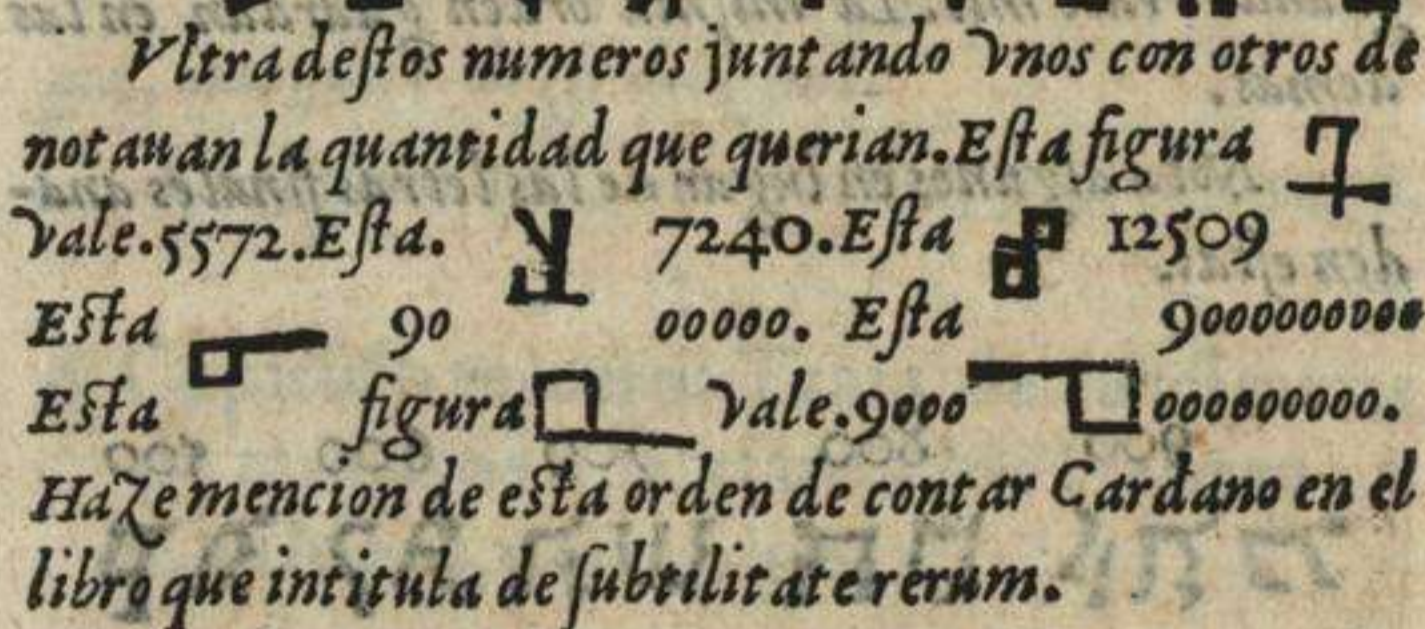 Vltra deſtos numeros juntando vnos con otros de
notauan la quantidad que querian. Eſta figura
vale. 5572. Eſta. 7240. Eſta 12509
Eſta 90 00000. Eſta 9000000000
Eſta figura vale. 9000 000000000.
Haze mencion de eſta orden de contar Cardano en el
libro que intitula de ſubtilitate rerum.